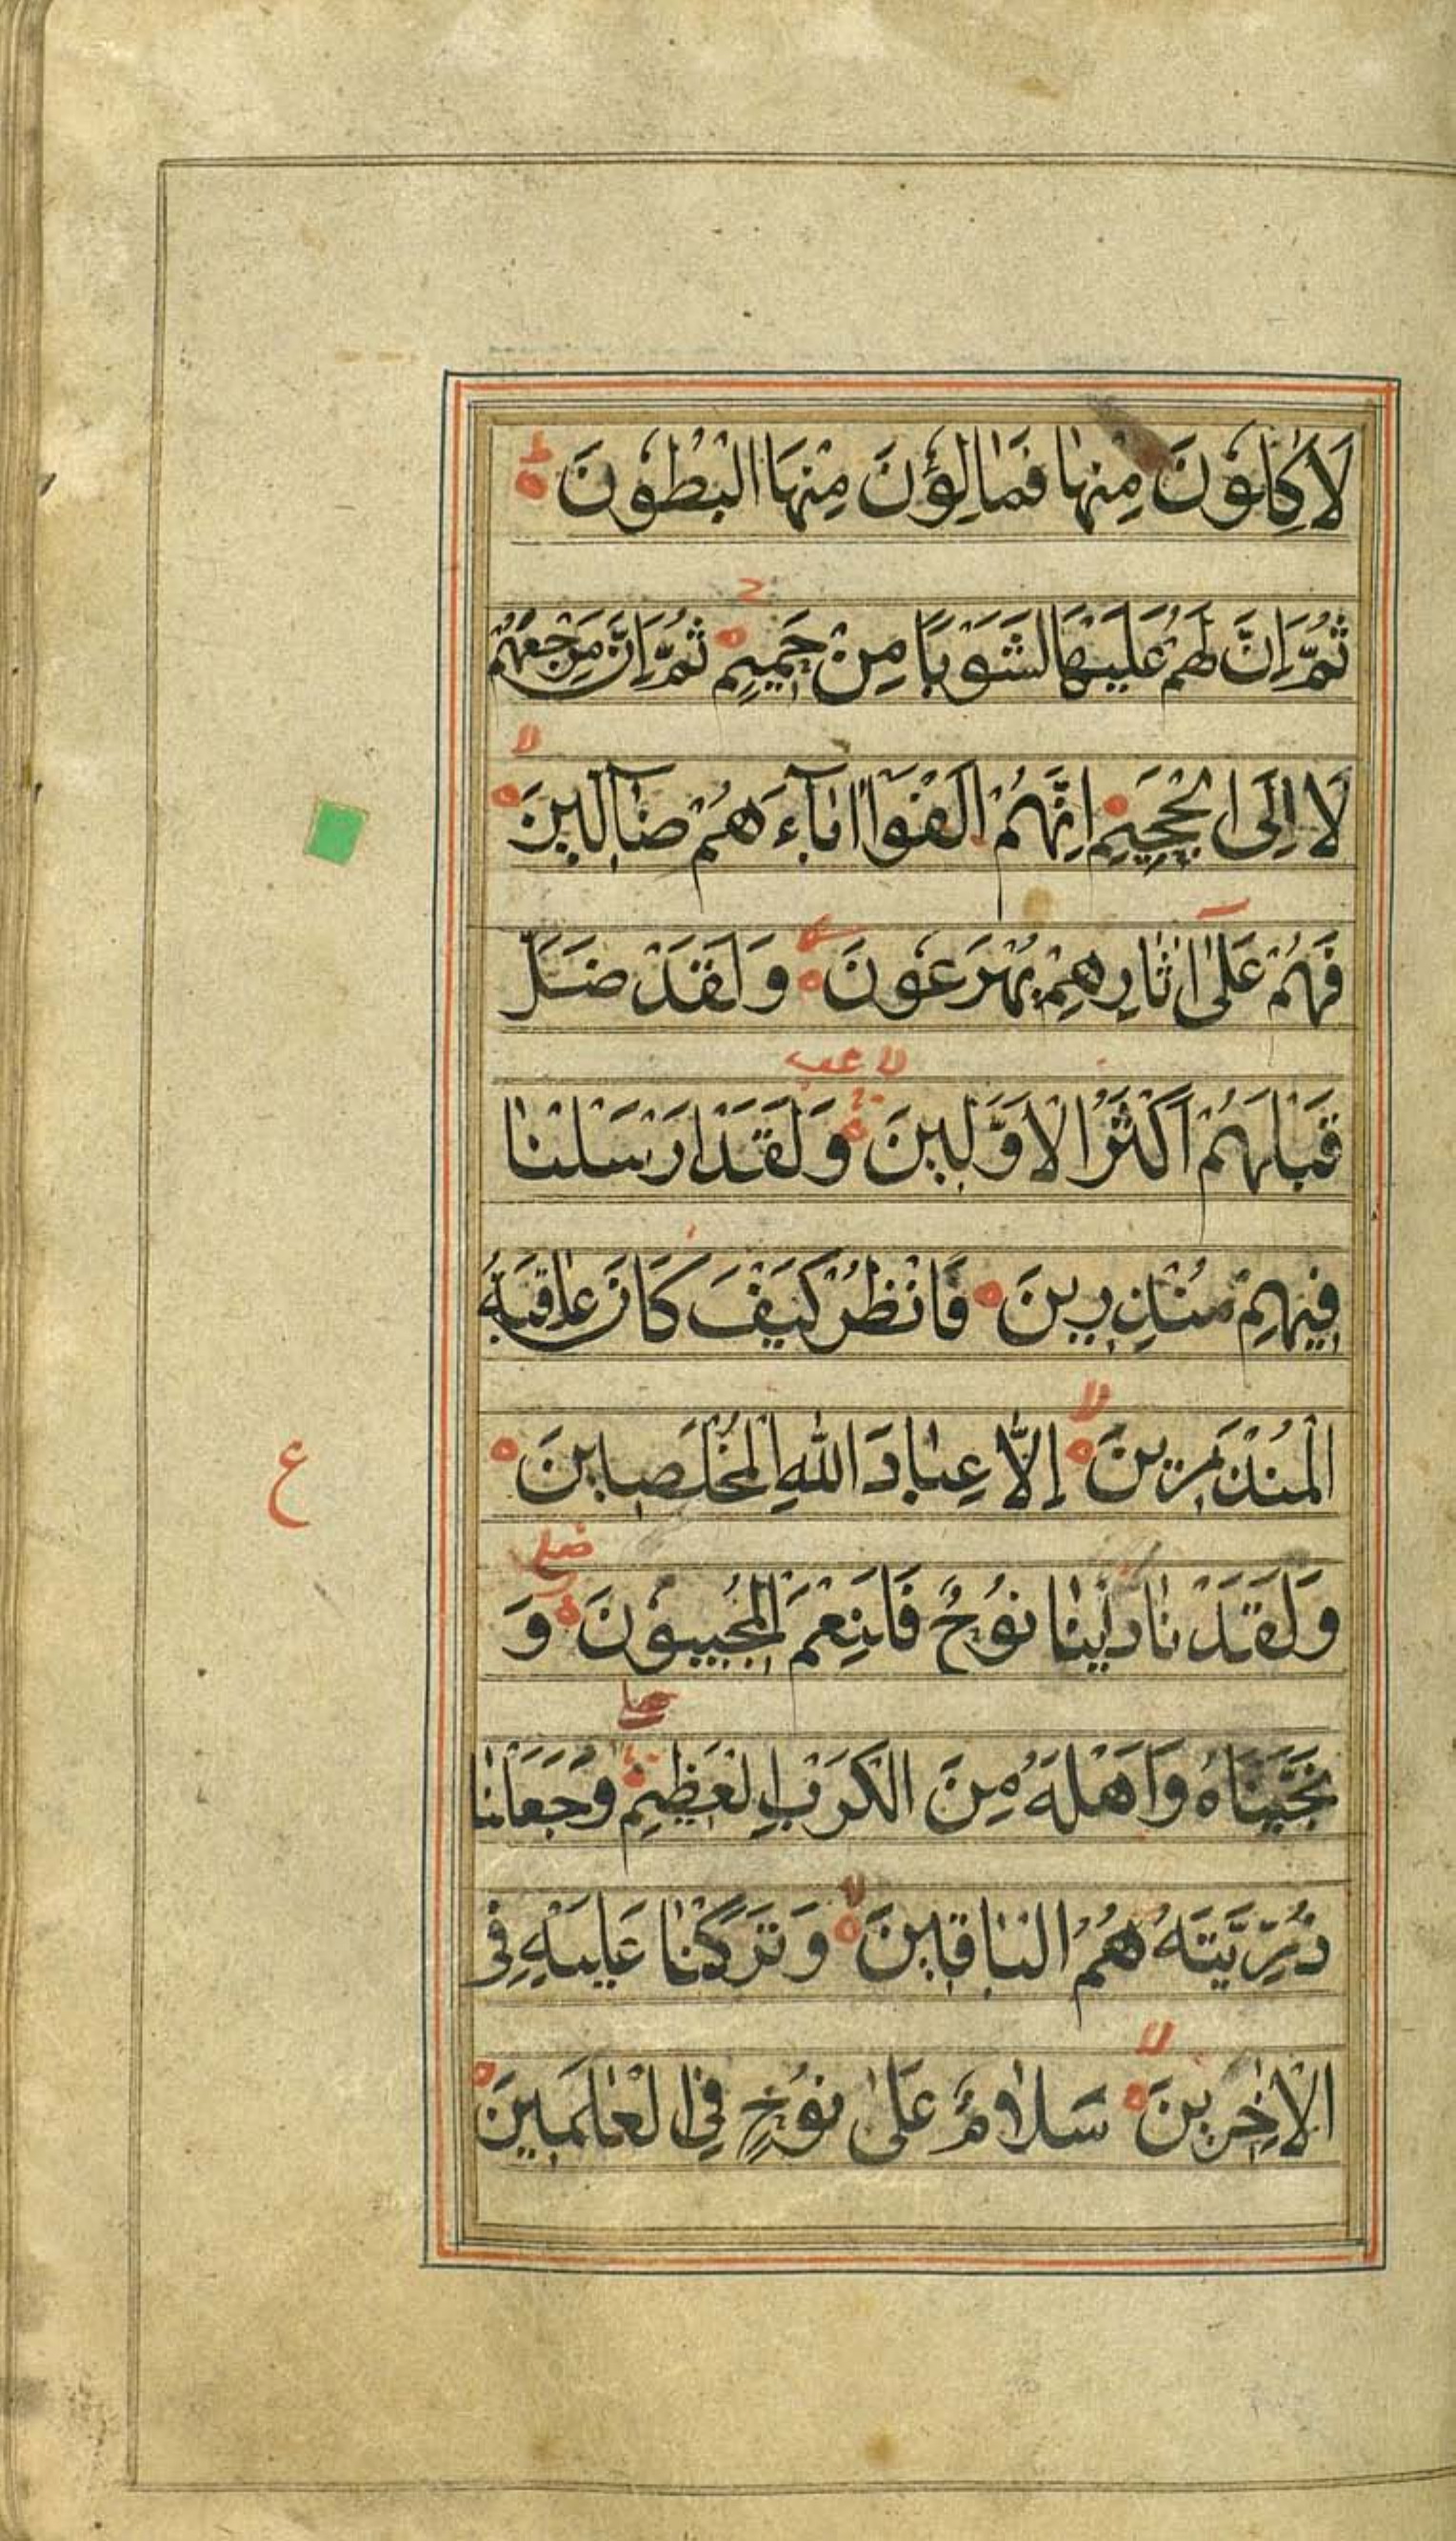 لَاٰكِلُوْنَ مِنْهٰا فَمٰالِؤُنَ مِنْهَا الْبُطُوْنَ ط
ثُمَّ اِنَّ لَهُمْ عَلَيْهٰا لَشَوْبًا مِنْ حَمِيْمٍ ثُمَّ اِنَّ مَرْجِعَهُمْ
لَا اِلَى الْجَحِيْمِ اِنَّهُمْ اَلْفَوْا اٰبآءَهُمْ ضٰآلِّيْنَ لا
فَهُمْ عَلىٰ اٰثٰارِهِمْ يُهْرَعُوْنَ وَلَقَدْ ضَلَّ
قَبْلَهُمْ اَكْثَرُ الْاَوَّلِيْنَ لا عب وَلَقَدْ اَرْسَلْنٰا
فِيْهِمْ مُنْذِرِيْنَ فَانْظُرْ كَيْفَ كَانَ عٰاقِبَةُ
الْمُنْذَرِيْنَ لا اِلَّا عِبٰادَ اللّٰهِ الْمُخْلَصِيْنَ
ع
وَلَقَدْ نٰادٰينٰا نُوْحٌ فَلَنِعْمَ الْمُجِيْبُوْنَ وَ
نَجَّيْنَاهُ وَاَهْلَهُ مِنَ الْكَرْبِ الْعَظِيْمِ وَجَعَلْنٰا
ذُرِّيَّتَهُ هُمُ الْبٰاقِيْنَ لا وَتَرَكْنٰا عَلَيْهِ فِى
الْاٰخِرِيْنَ لا سَلٰامٌ عَلىٰ نُوْحٍ فِى الْعٰالَمِيْنَ